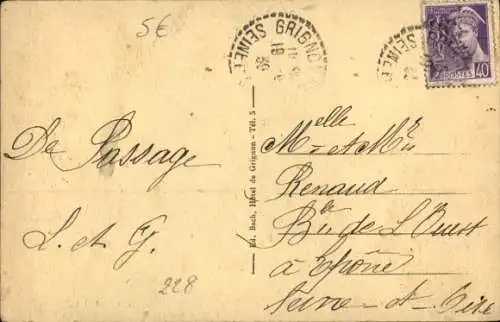 5€
GRIGNON
SEINE
19
SEINE
POSTES 40
De Passage
L. et G.
228
Ed. Bech, Hôtel de Grignon - Tél. 5
Melle
M et Mr
Renaud
Bd de L'Ouest
à Epône
Seine-et-Oise